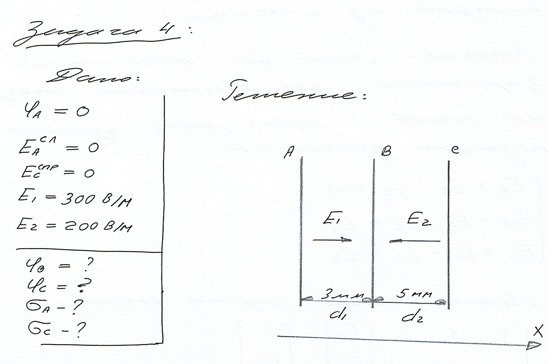 Задача 4:
Дано:
φA = 0
EAсл = 0
ECспр = 0
E1 = 300 В/м
E2 = 200 В/м
φв = ?
φс = ?
σA - ?
σс - ?
Решение:
A B C
E1 E2
3мм 5мм
d1 d2
X